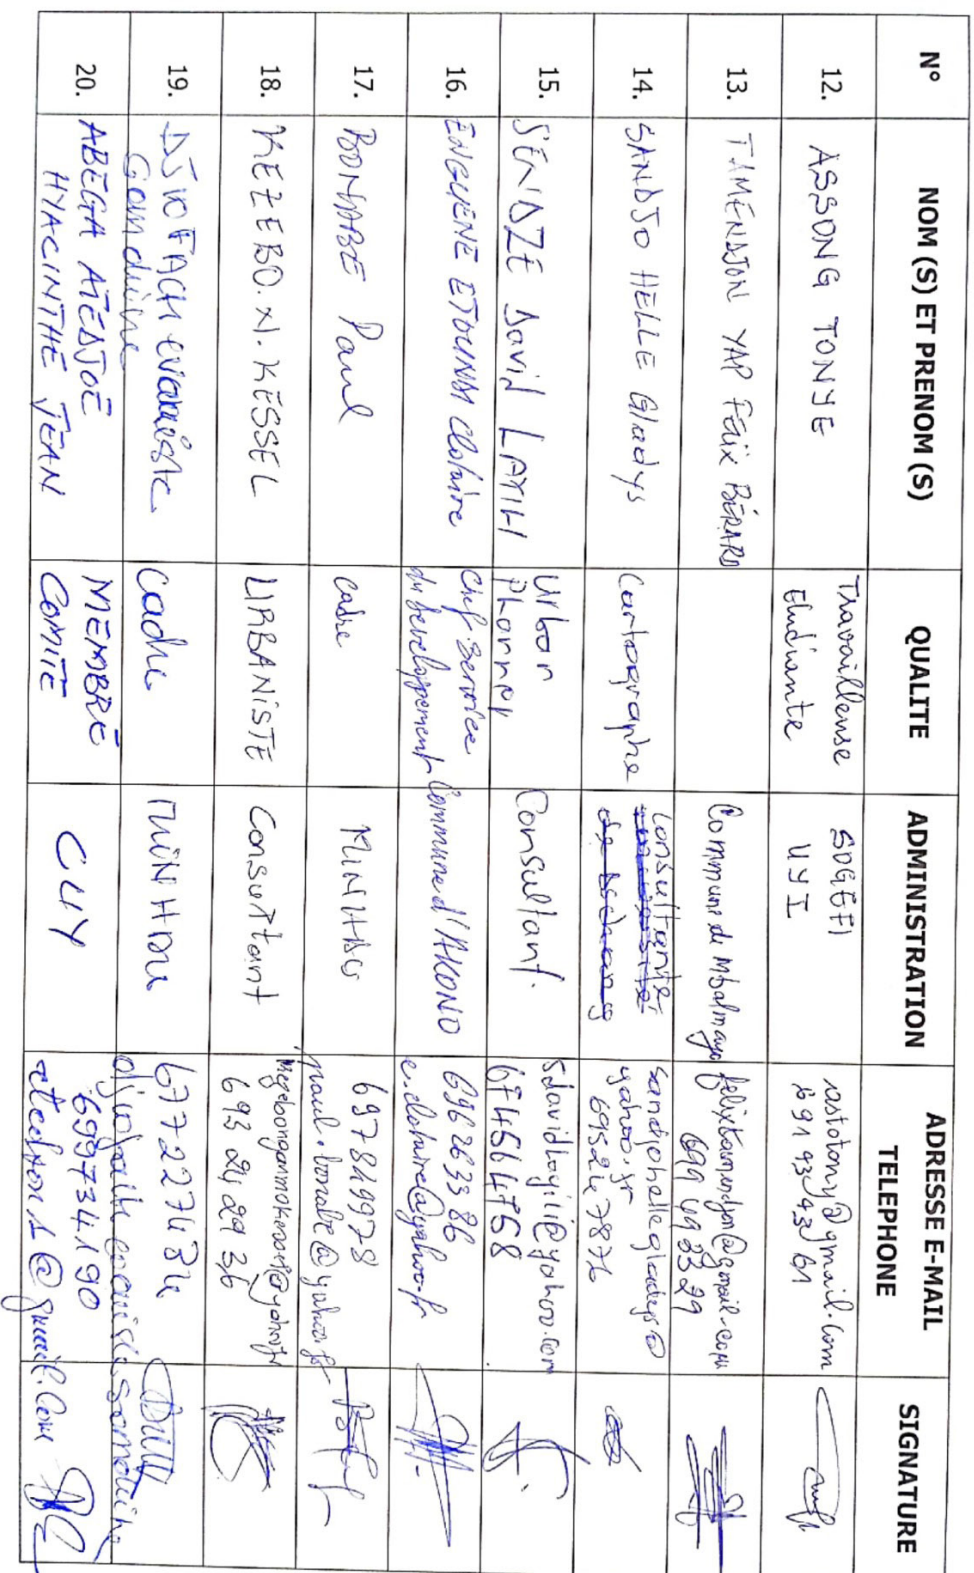 N° NOM (S) ET PRENOM (S) QUALITE ADMINISTRATION ADRESSE E-MAIL
TELEPHONE SIGNATURE
12. ASSONG TONYE Travailleuse
Etudiante SOGEFI
UYI @gmail.com
13. TAMENDJON YAP Félix BÉRARD Commune de Mbalmayo felixtamendjon@gmail.com
699 49 33 29
14. SANDJO HELLE Gladys Cartographe Consultante
sandjohellegladys@
yahoo.fr
695247876
15. SENDZE David LAYIH Urban
Planner Consultant. Sdavidlayih@yahoo.com
674564768
16. ENGUENE ETOUNDI Clotaire Chef Service
du développement Commune d'AKONO 696263386
e.clotaire@yahoo.fr
17. BONABE Paul Cadre MINHDU 697849978
paul.bonabe@yahoo.fr
18. MEZEBO.N.KESSEL URBANISTE Consultant
693 24 29 36
19. DJIOFACK evariste
Cadre MINHDU 677227434
20. ABEGA ATEDJOE
HYACINTHE JEAN MEMBRE
COMITE CUY 699734190